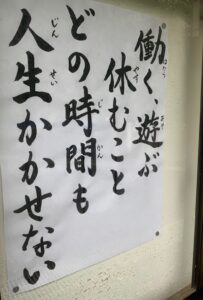 働く、遊ぶ
休むこと
どの時間も
人生かかせない